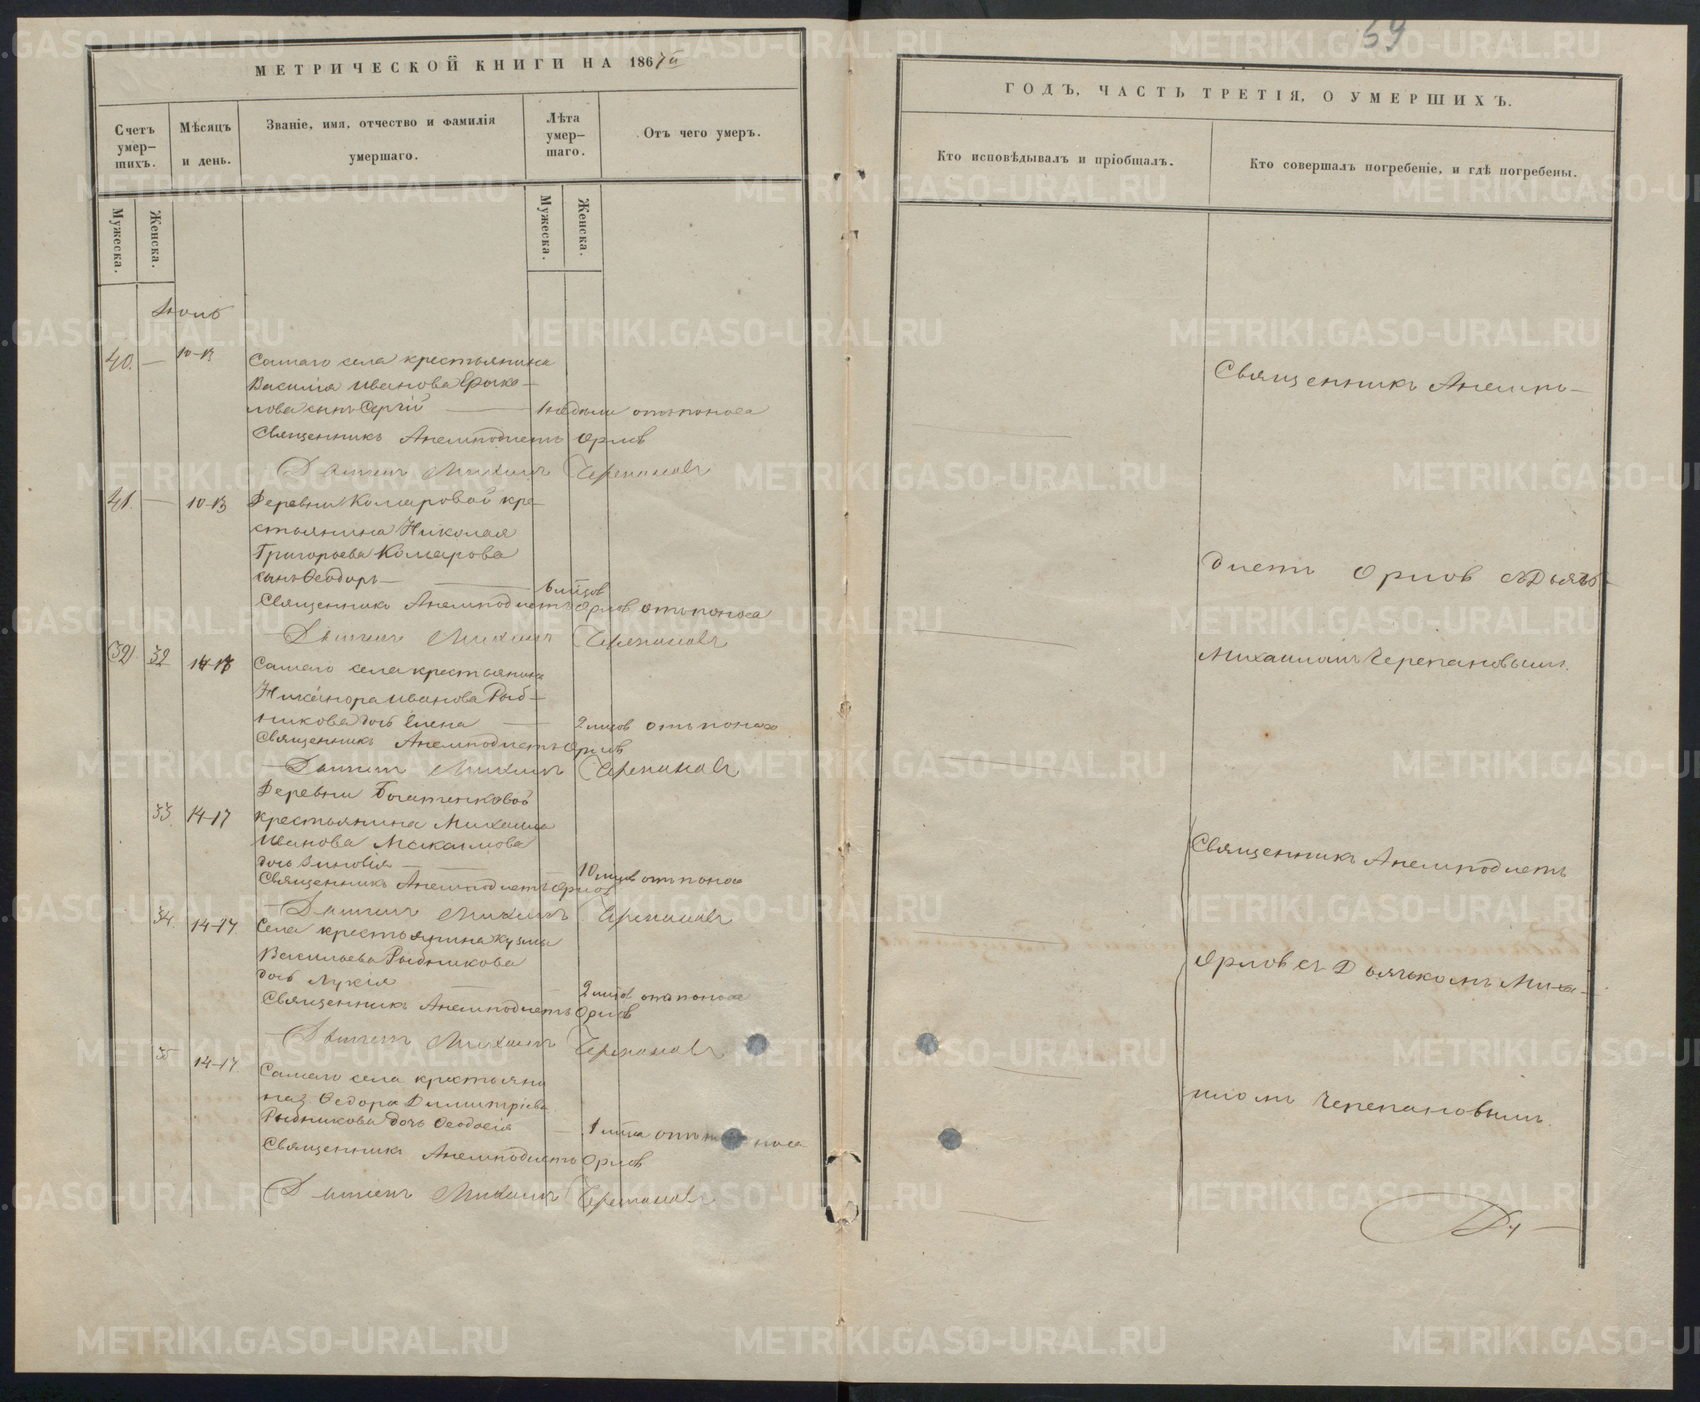 59
МЕТРИЧЕСКОЙ КНИГИ НА 1867й
Счетъ умер-шихъ.
Мужеска.
Женска.
Мѣсяцъ и день.
Званіе, имя, отчество и фамилія умершаго.
Лѣта умер-шаго.
Мужеска.
Женска.
Отъ чего умеръ.
Июль
40. — 10-13
Самаго села крестьянина
Василія Иванова
сынъ Сергій — 1 недѣли отъ поноса
Священникъ Анемподистъ Орловъ
Дьячекъ Михаилъ Черепановъ
41. — 10-13
Деревни Комаровой кре-
стьянина Николая
Григорьева Комарова
сынъ Ѳеодоръ — 6 мѣсцов
Священникъ Анемподистъ Орловъ отъ поноса
Дьячекъ Михаилъ Черепановъ
32 32 14-17
Самаго села крестьянина
Никанора Иванова Рыб-
никова дочь Елена — 2 мѣсцов отъ поноса
Священникъ Анемподистъ Орловъ
Дьячекъ Михаилъ Черепановъ
33. 14-17
Деревни Богатенковой
крестьянина Михаила
Иванова Макаилова
дочь Зиновія — 10 мѣсцов отъ поноса
Священникъ Анемподистъ Орловъ
Дьячекъ Михаилъ Черепановъ
34 14-17.
Села крестьянина Кузмы
Васильева Рыбникова
дочь Лукія — 2 мѣсцов отъ поноса
Священникъ Анемподистъ Орловъ
Дьячекъ Михаилъ Черепановъ
35 14-17.
Самаго села крестьяни
на Ѳедора Димитріева
Рыбникова дочь Ѳеодосія — 1 мѣсца отъ поноса
Священникъ Анемподистъ Орловъ
Дьячекъ Михаилъ Черепановъ
ГОДЪ, ЧАСТЬ ТРЕТІЯ, О УМЕРШИХЪ.
Кто исповѣдывалъ и пріобщалъ.
Кто совершалъ погребеніе, и гдѣ погребены.
Священникъ Анемпо-
дистъ Орловъ съ Дьячь-
Михаиломъ Черепановымъ.
Священникъ Анемподистъ
Орловъ съ Дьячькомъ Миха-
иломъ Черепановымъ.
METRIKI.GASO-URAL.RU